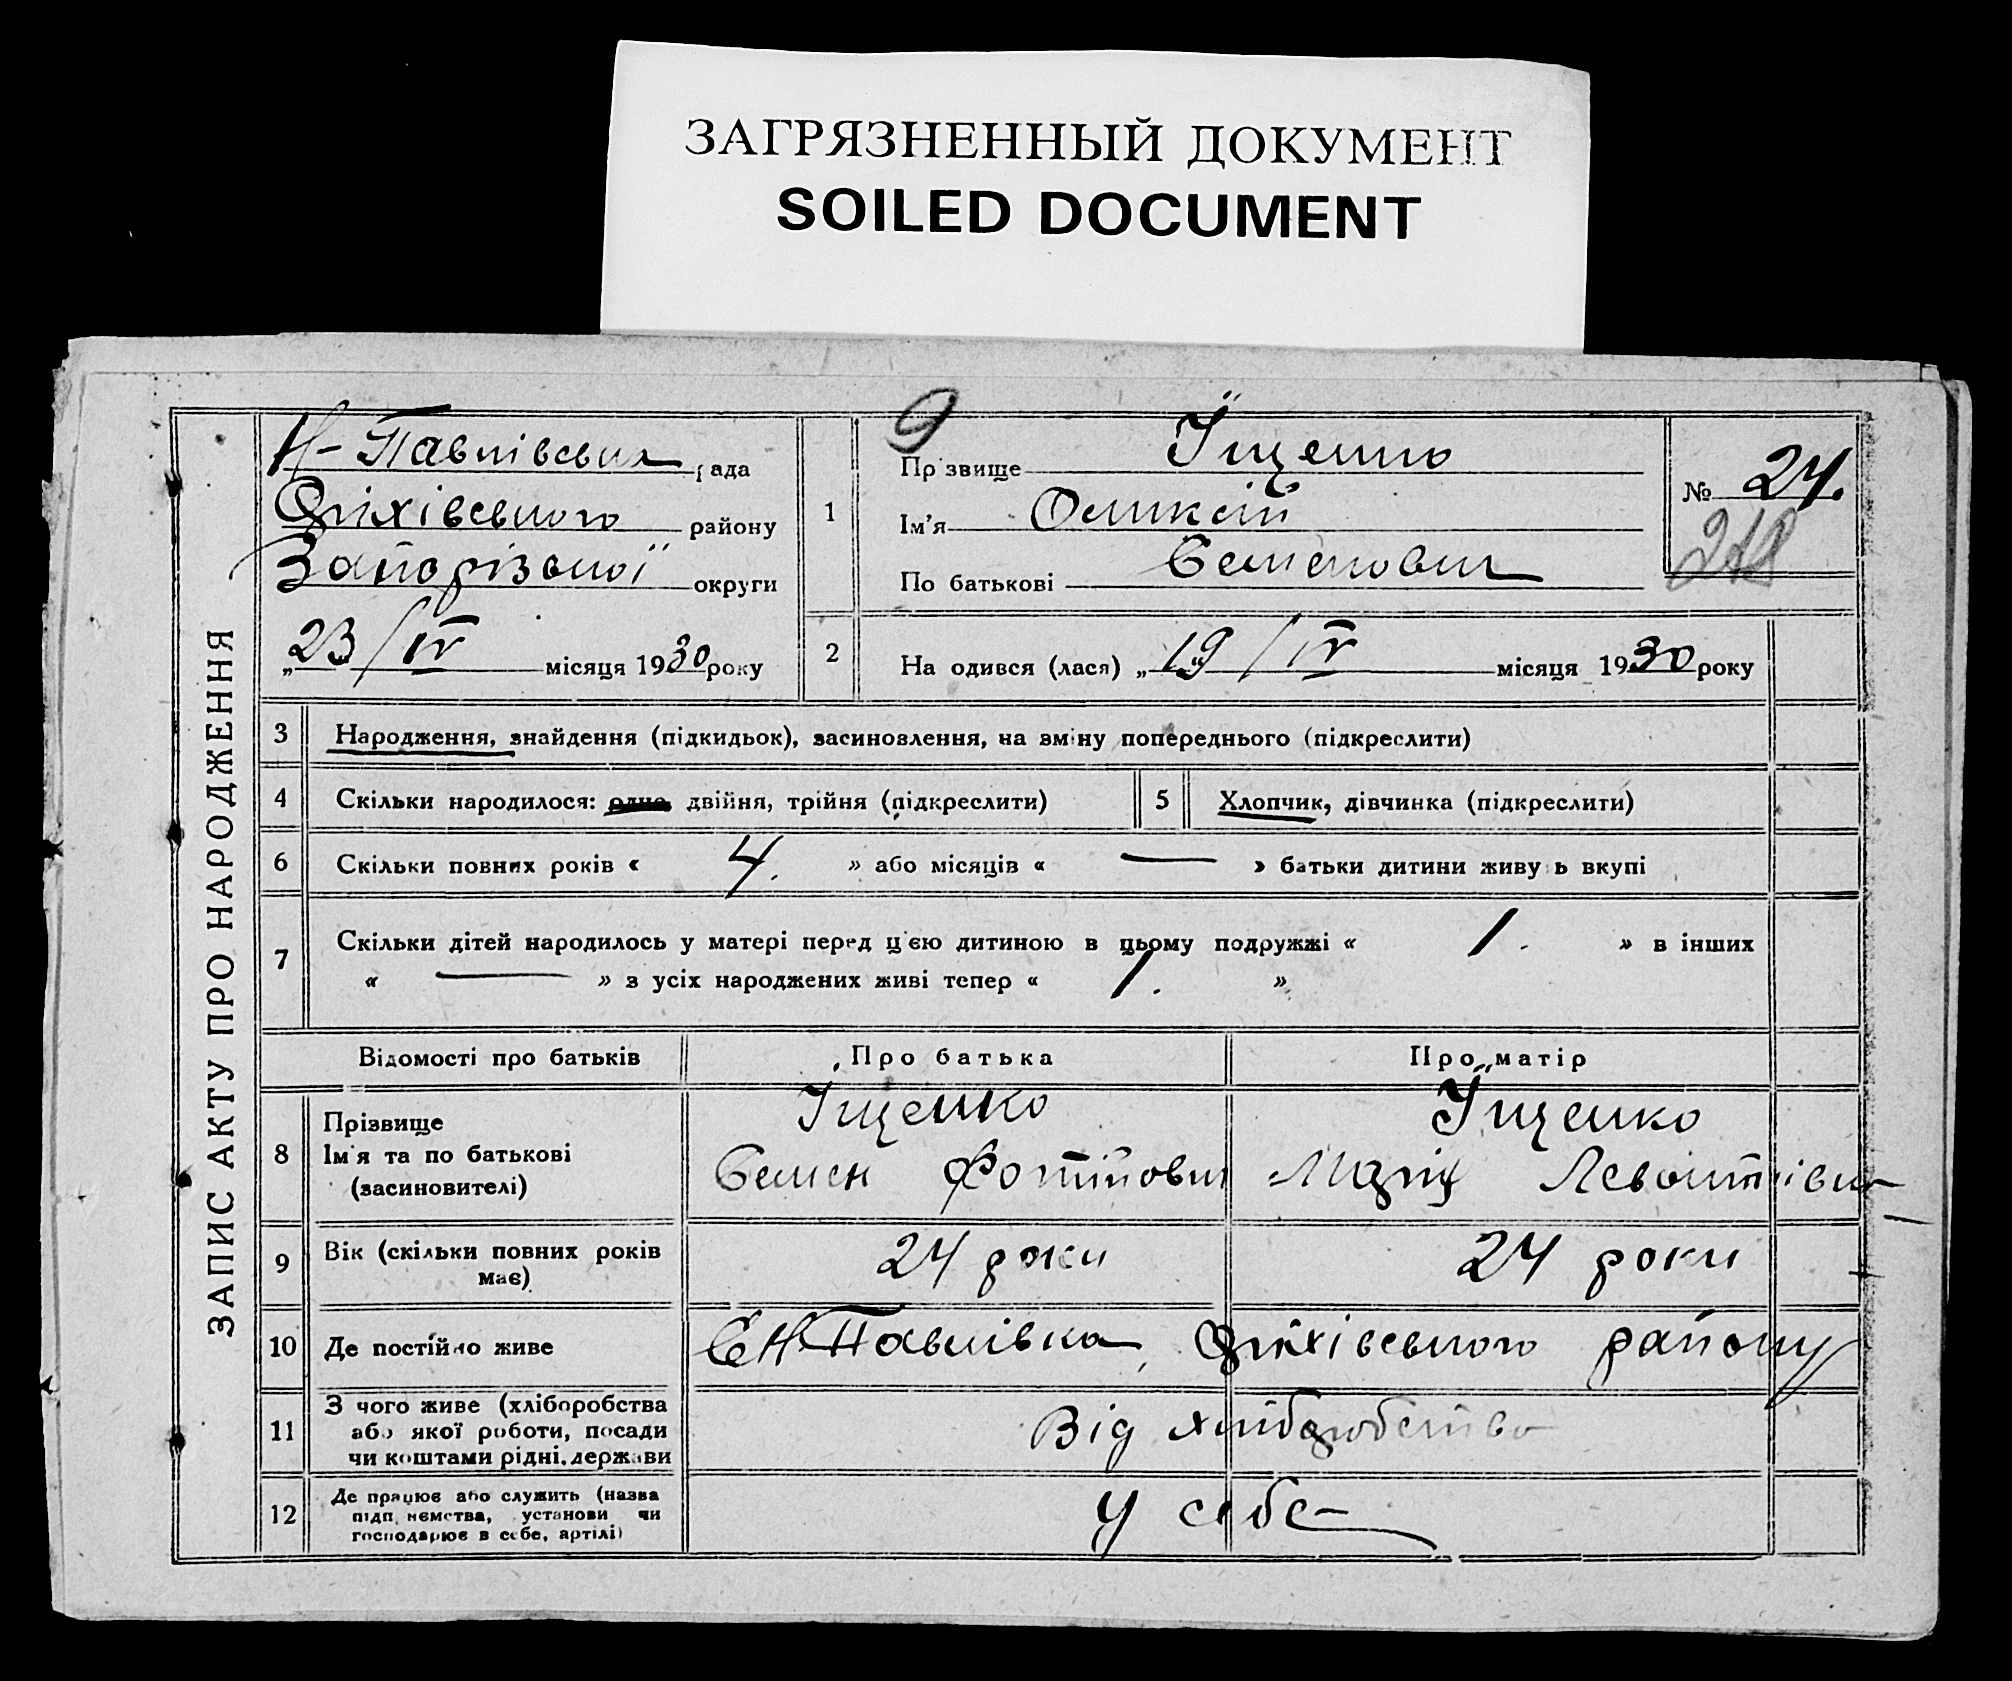 ЗАГРЯЗНЕННЫЙ ДОКУМЕНТ
SOILED DOCUMENT
ЗАПИС АКТУ ПРО НАРОДЖЕННЯ
Н-Павлівська рада
Оріхівського району
Запорізької округи
„23/IV місяця 1930 року
9
1
Прізвище Їщенко
Ім'я Оликсій
По батькові Семенович
№ 24.
2 На одився (лася) „19/IV місяця 1930 року
3 Народження, знайдення (підкидьок), засиновлення, на зміну попереднього (підкреслити)
4 Скільки народилося: одно, двійня, трійня (підкреслити)
5 Хлопчик, дівчинка (підкреслити)
6 Скільки повних років « 4. » або місяців « — » батьки дитини живу ь вкупі
7 Скільки дітей народилось у матері перед цією дитиною в цьому подружжі « 1. » в інших
« — » з усіх народжених живі тепер « 1. »
Відомості про батьків Про батька Про матір
8 Прізвище
Ім'я та по батькові
(засиновителі)
Їщенко
Семен Фотійович
Їщенко
Марія
9 Вік (скільки повних років
має)
24 роки 24 роки
10 Де постійно живе С Н-Павлівка, Оріхівського району
11 З чого живе (хліборобства
або якої роботи, посади
чи коштами рідні, держави
Від хліборобства
12 Де працює або служить (назва
підп. немства, установи чи
господарює в себе, артілі)
У себе